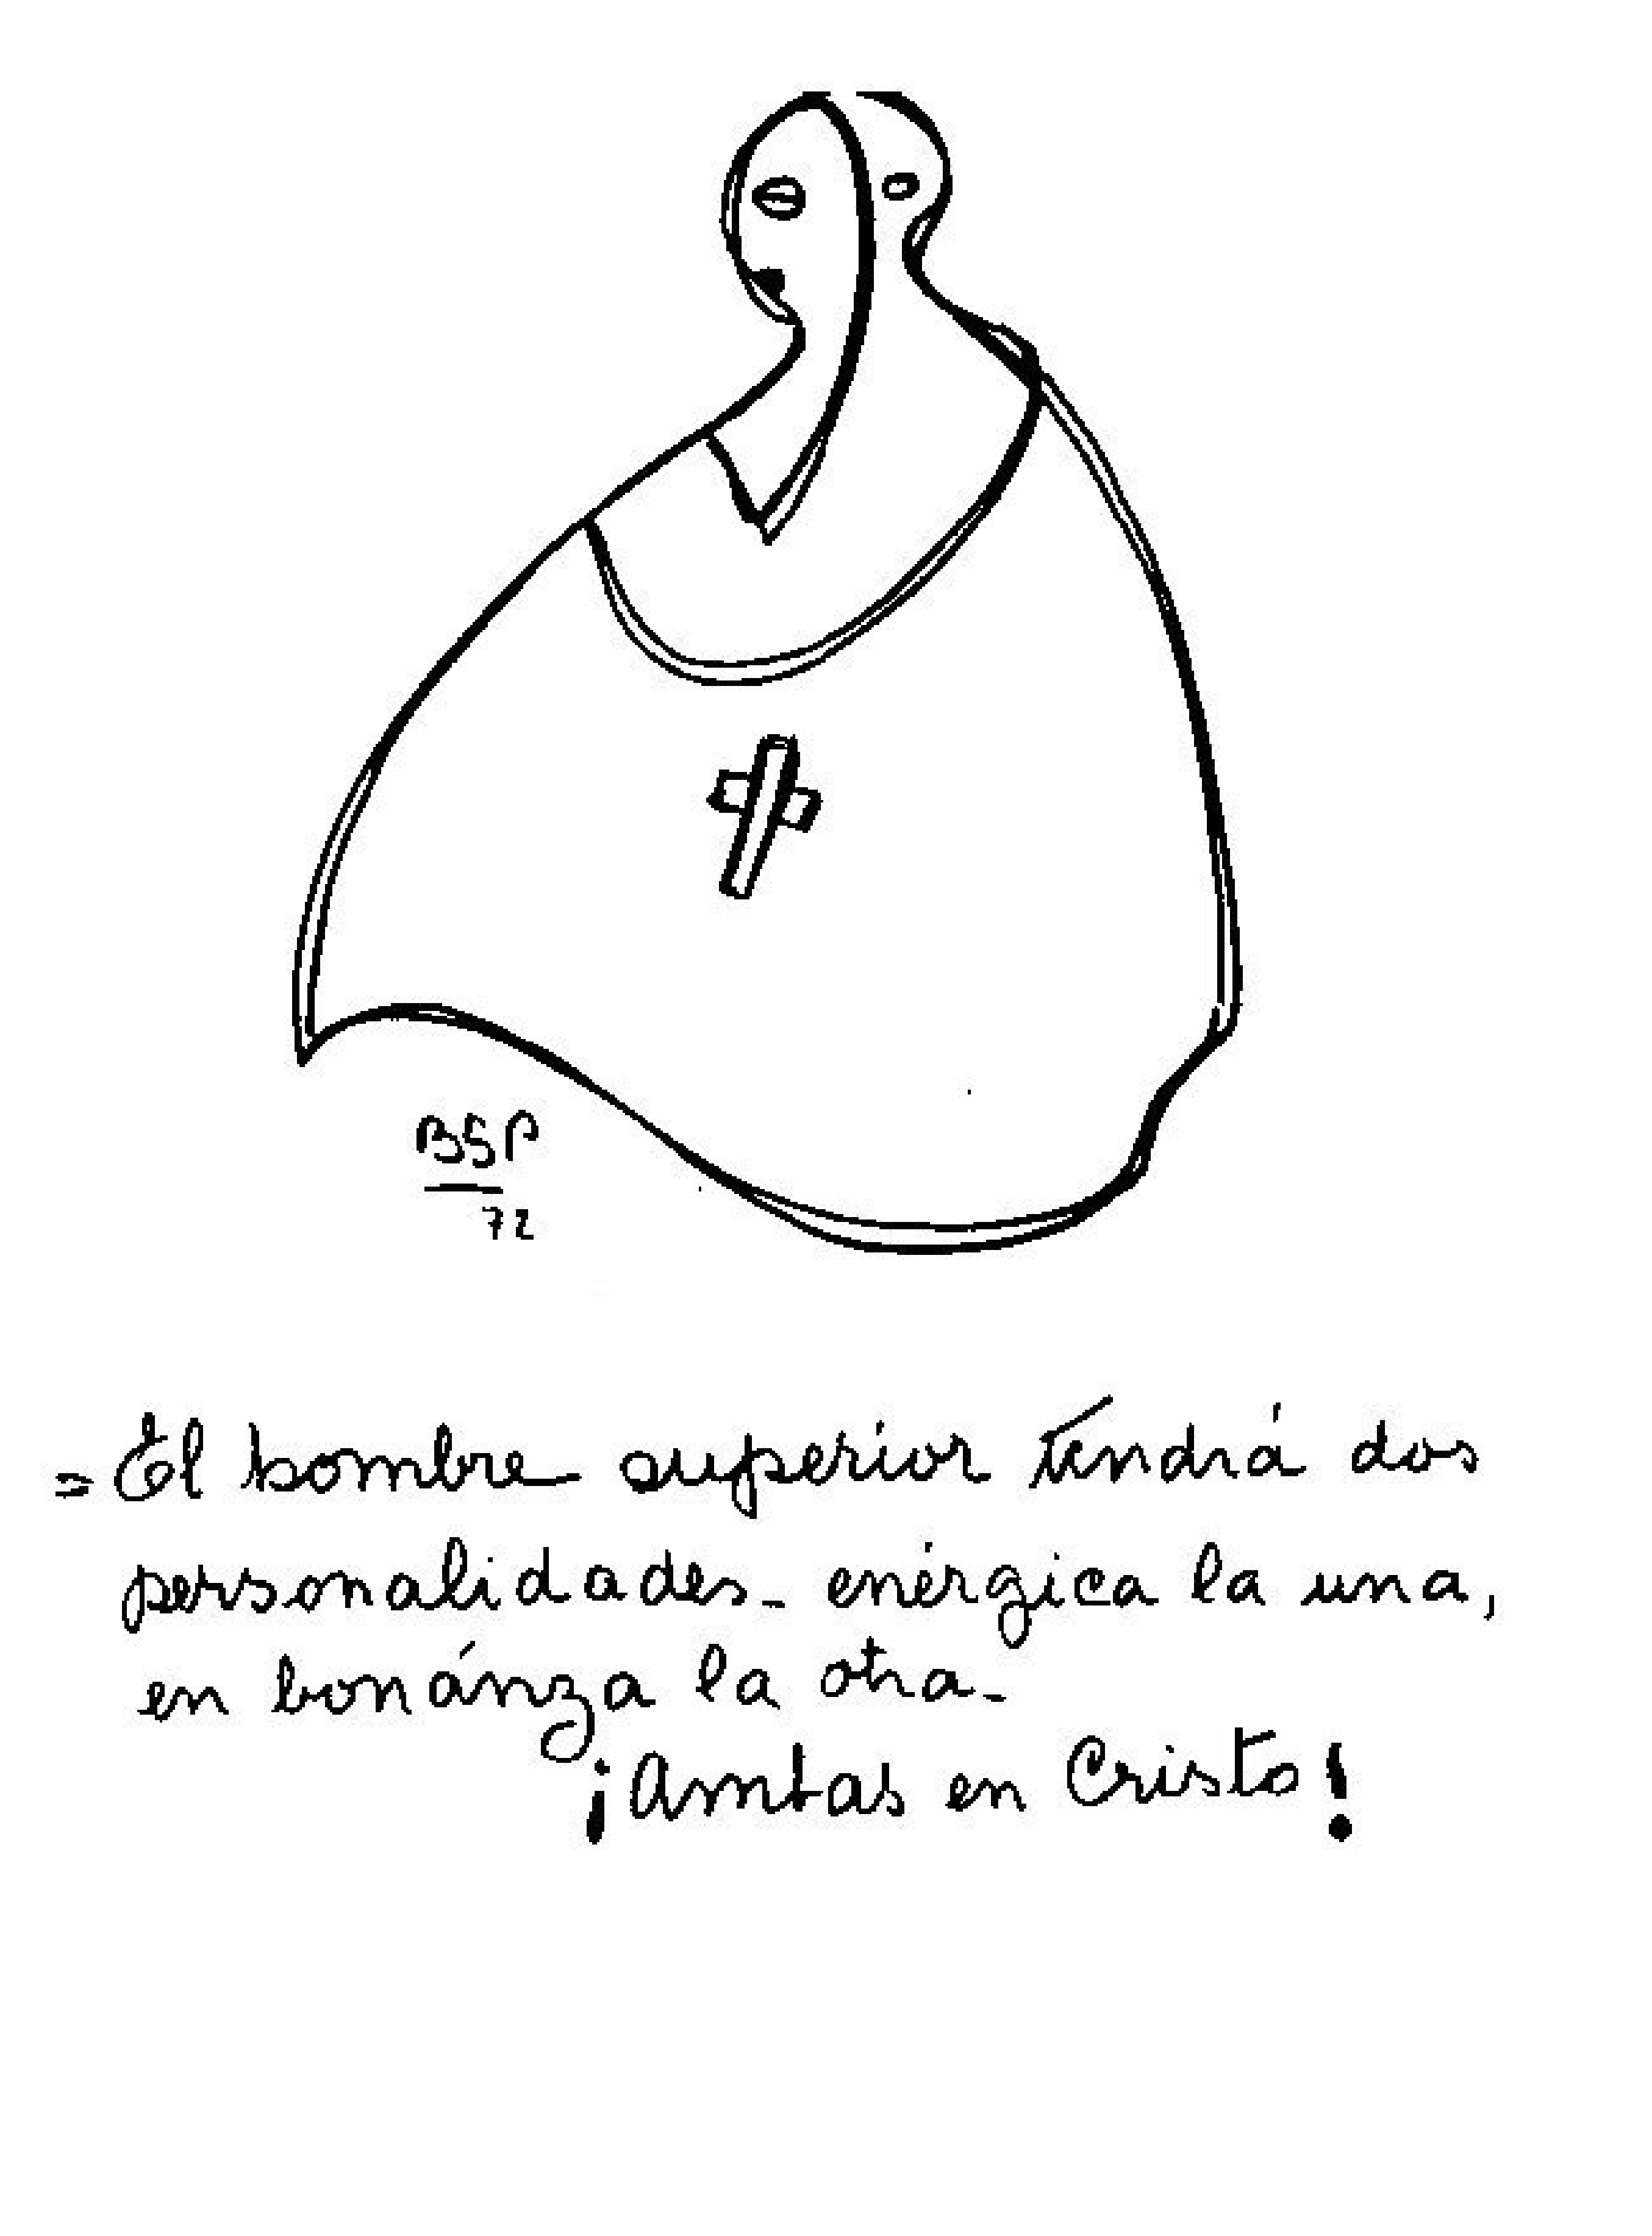 BSP
72
= El hombre superior tendrá dos
personalidades - enérgica la una,
en bonánza la otra -
¡Ambas en Cristo!